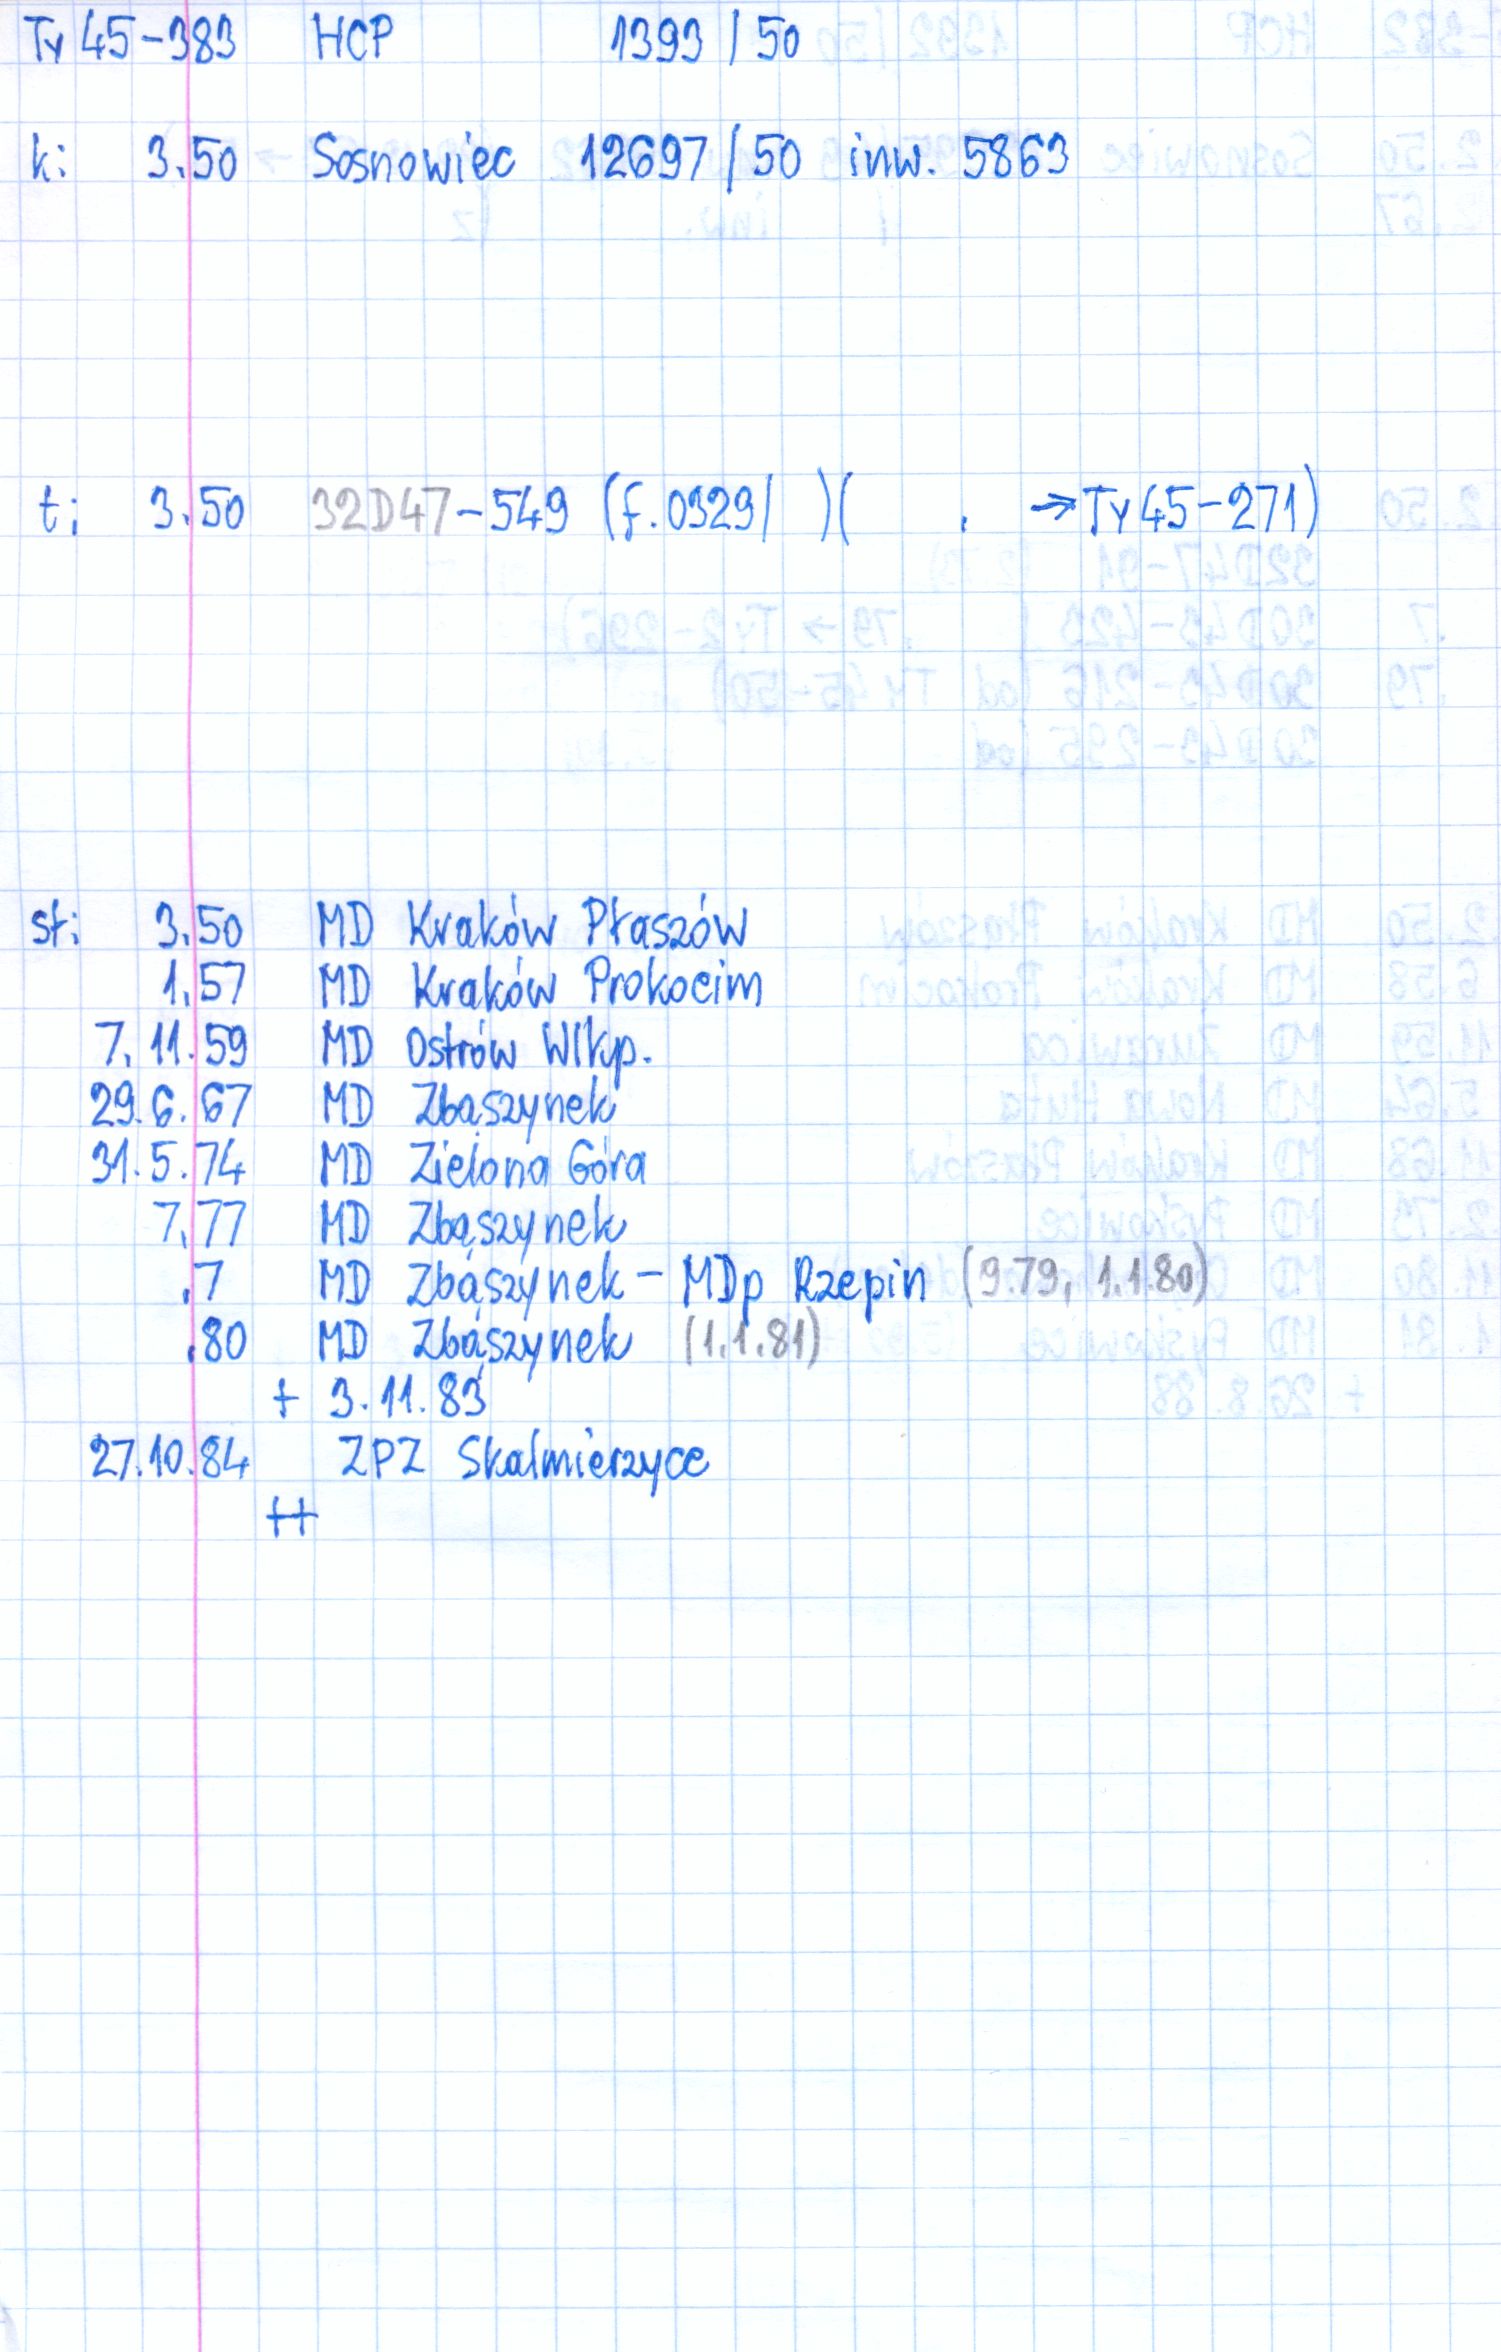 Ty45-383 HCP 1393/50
k: 3.50 Sosnowiec 12697/50 inw. 5863
t: 3.50 32D47-549 (f.0329/ )( . → Ty45-271)
st: 3.50 MD Kraków Płaszów
1.57 MD Kraków Prokocim
7.11.59 MD Ostrów Wlkp.
29.6.67 MD Zbąszynek
31.5.74 MD Zielona Góra
7.77 MD Zbąszynek
.7 MD Zbąszynek - MDp Rzepin (9.79, 1.1.80)
.80 MD Zbąszynek (1.1.81)
+ 3.11.83
27.10.84 ZPZ Skalmierzyce
++